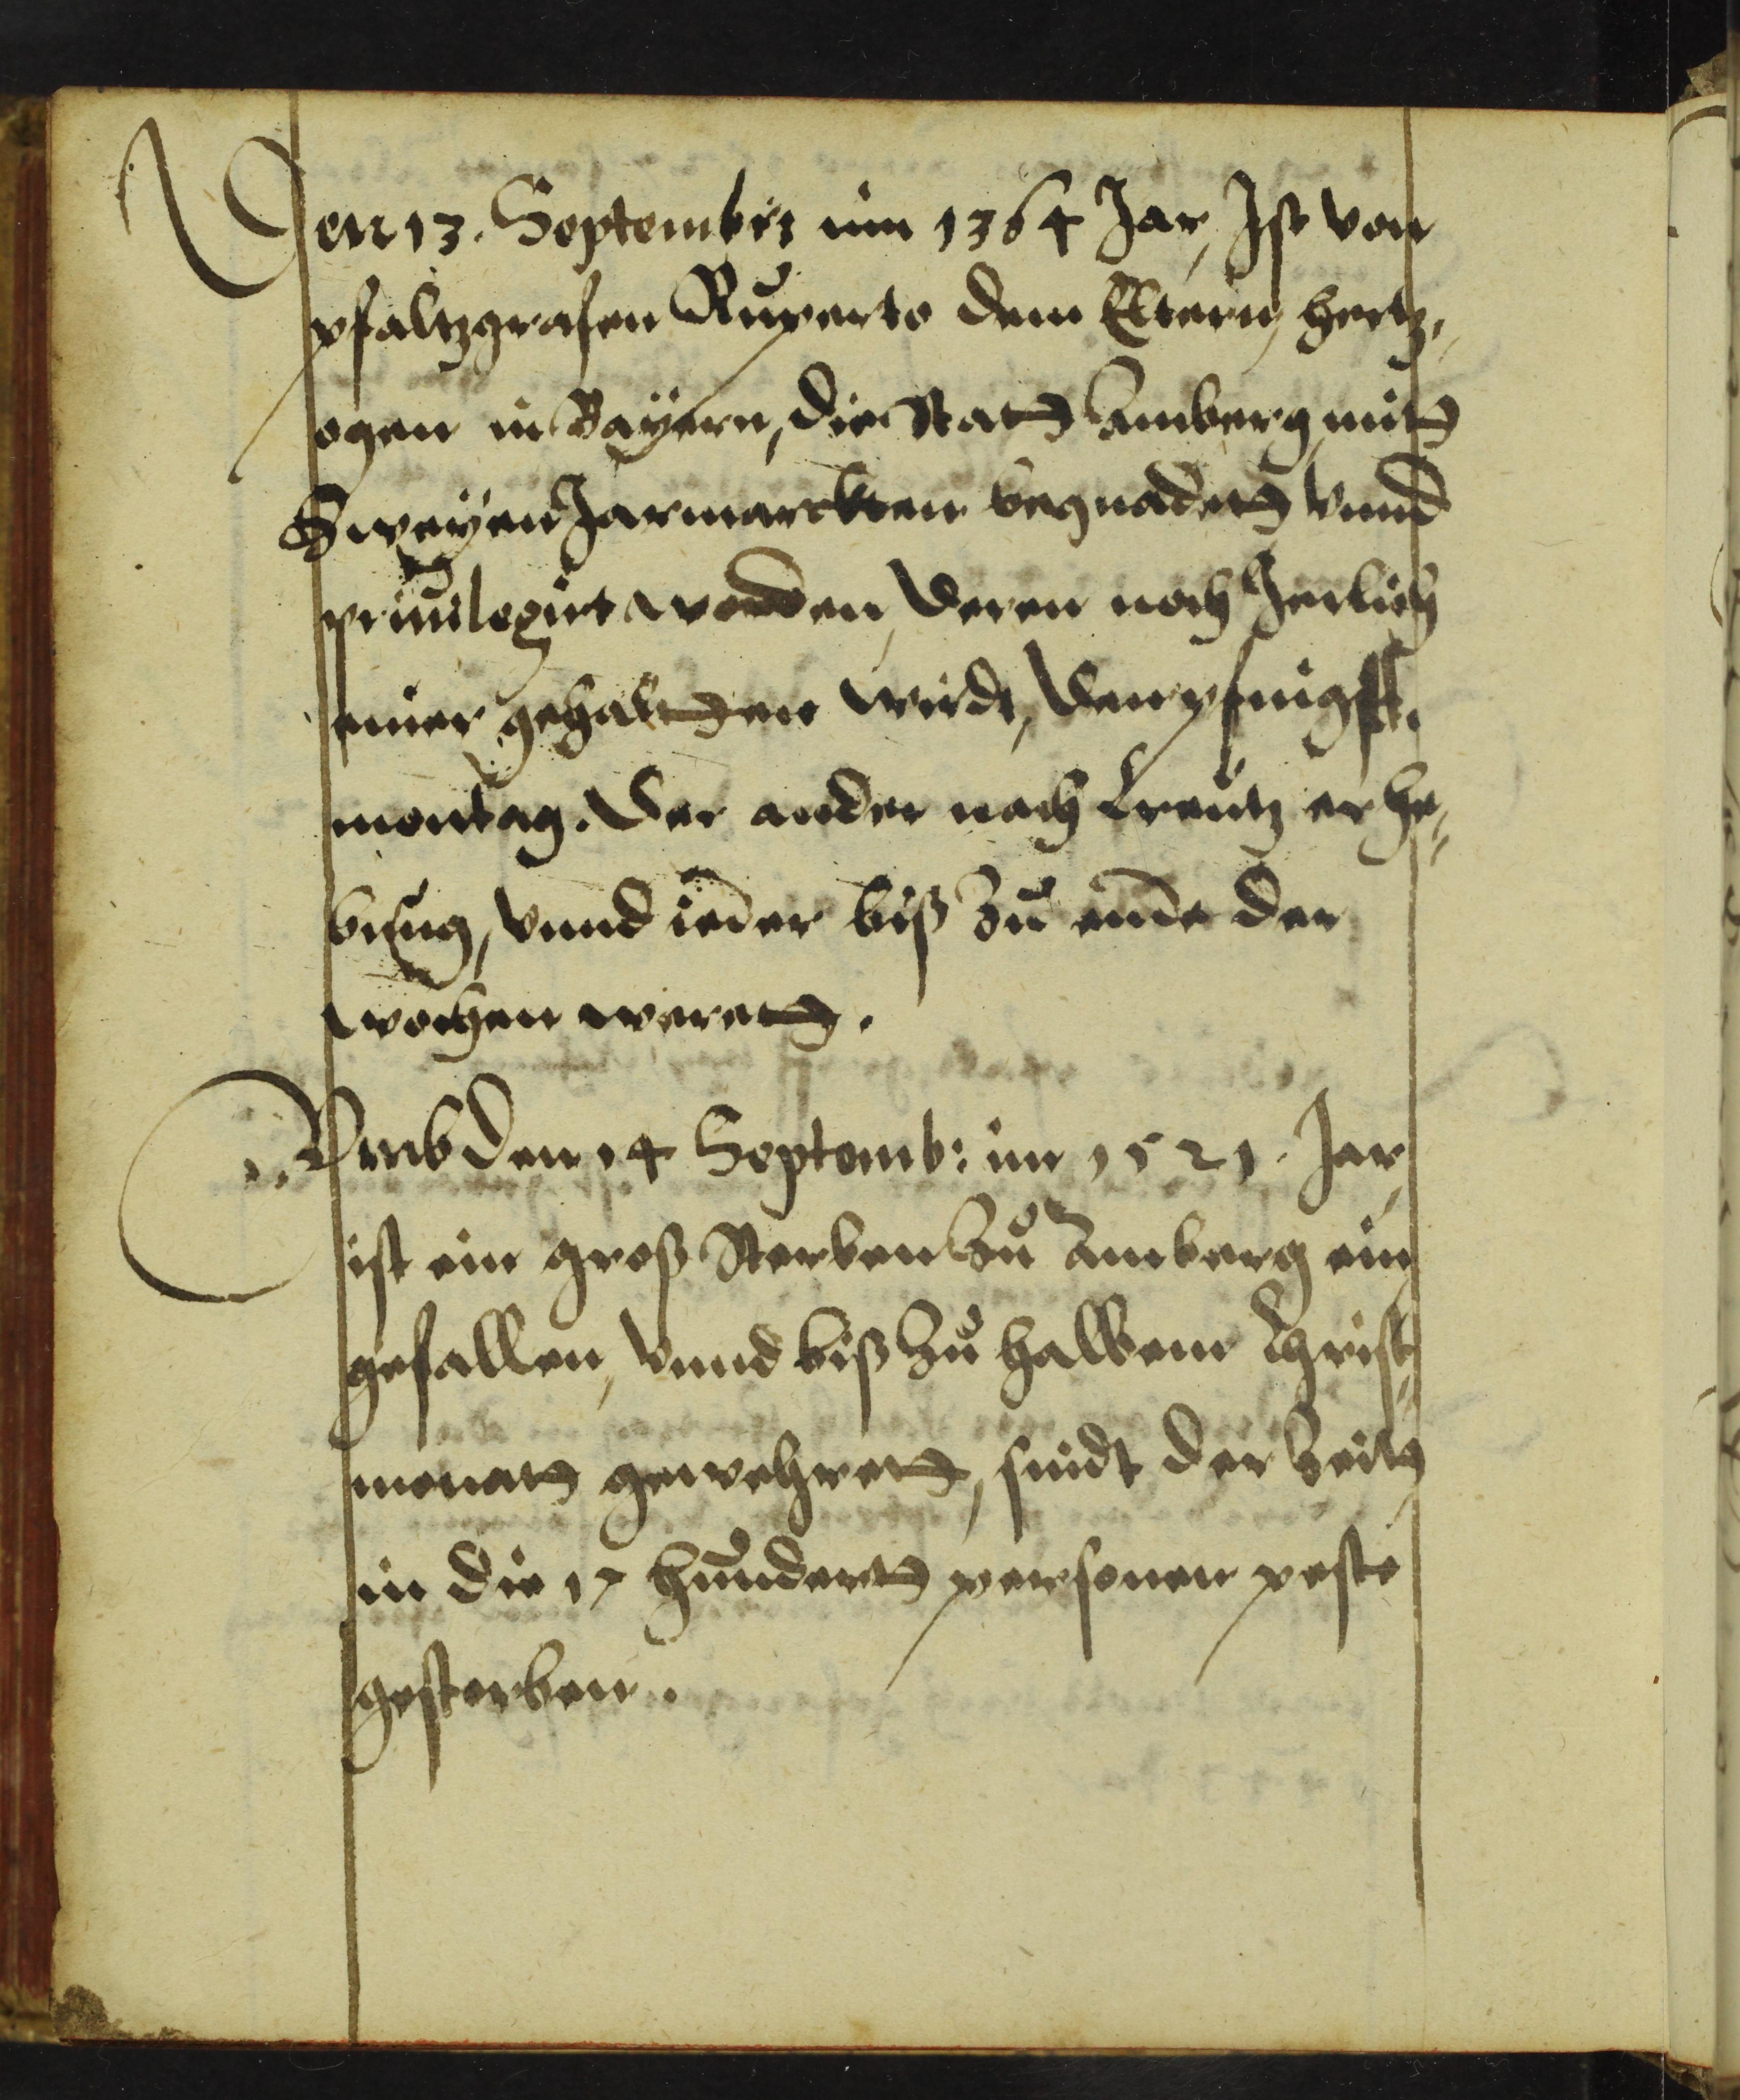 Den 13. Septembris im 1364 Jar, Ist von
pfaltzgrafen Ruperto dem Eltern, hertz„
ogen in Bayern, die Statt Amberg, mitt
Zweyen Jarmarckten begnadett vnnd
priuilegirt worden, deren noch Jerlich
einer gehaltten wirdt, den pfingst„
montag. Der ander nach Creutz erhe„
bung, vnnd ieder biß zu ende der
wochen werett.
Vmb den 14 Septemb: im 1521. Jar,
ist ein groß Sterben zu Amberg ein
gefallen, vnnd biß zu halbem Christ„
monatt gewehrett, sindt der Zeitt
in die 17 hundertt personen peste
gestorben.